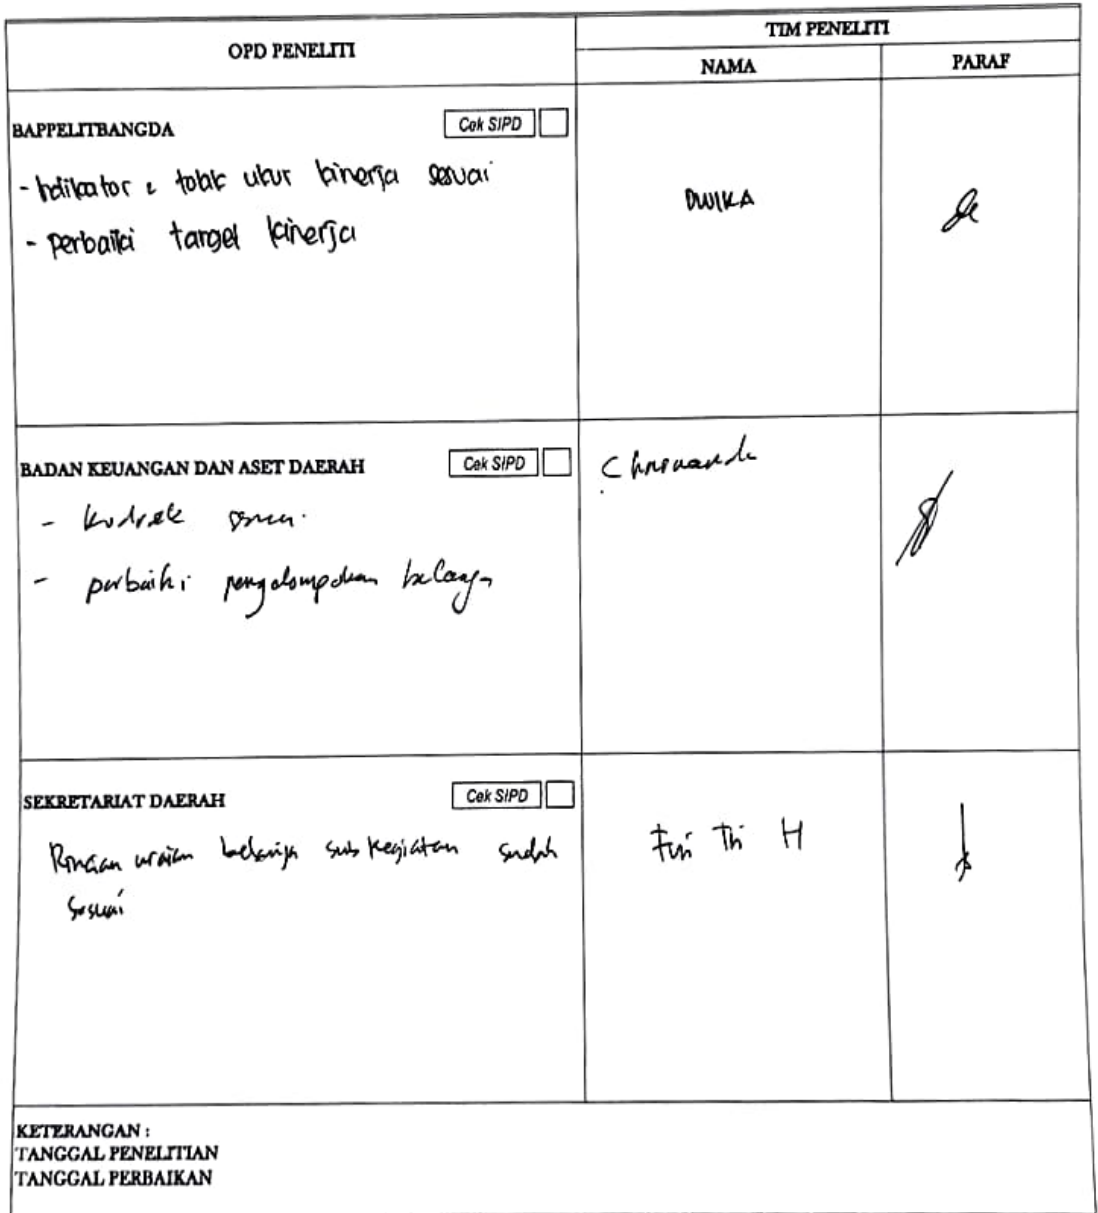 OPD PENELITI
TIM PENELITI
NAMA
PARAF
BAPPELITBANGDA
Cek SIPD
- Indikator & tolak ukur kinerja sesuai
- perbaiki target kinerja
DWIKA
BADAN KEUANGAN DAN ASET DAERAH
Cek SIPD
-
- perbaiki pengelompokan belanja
SEKRETARIAT DAERAH
Cek SIPD
Rincian uraian belanja sub kegiatan sudah
sesuai
Tri H
KETERANGAN :
TANGGAL PENELITIAN
TANGGAL PERBAIKAN